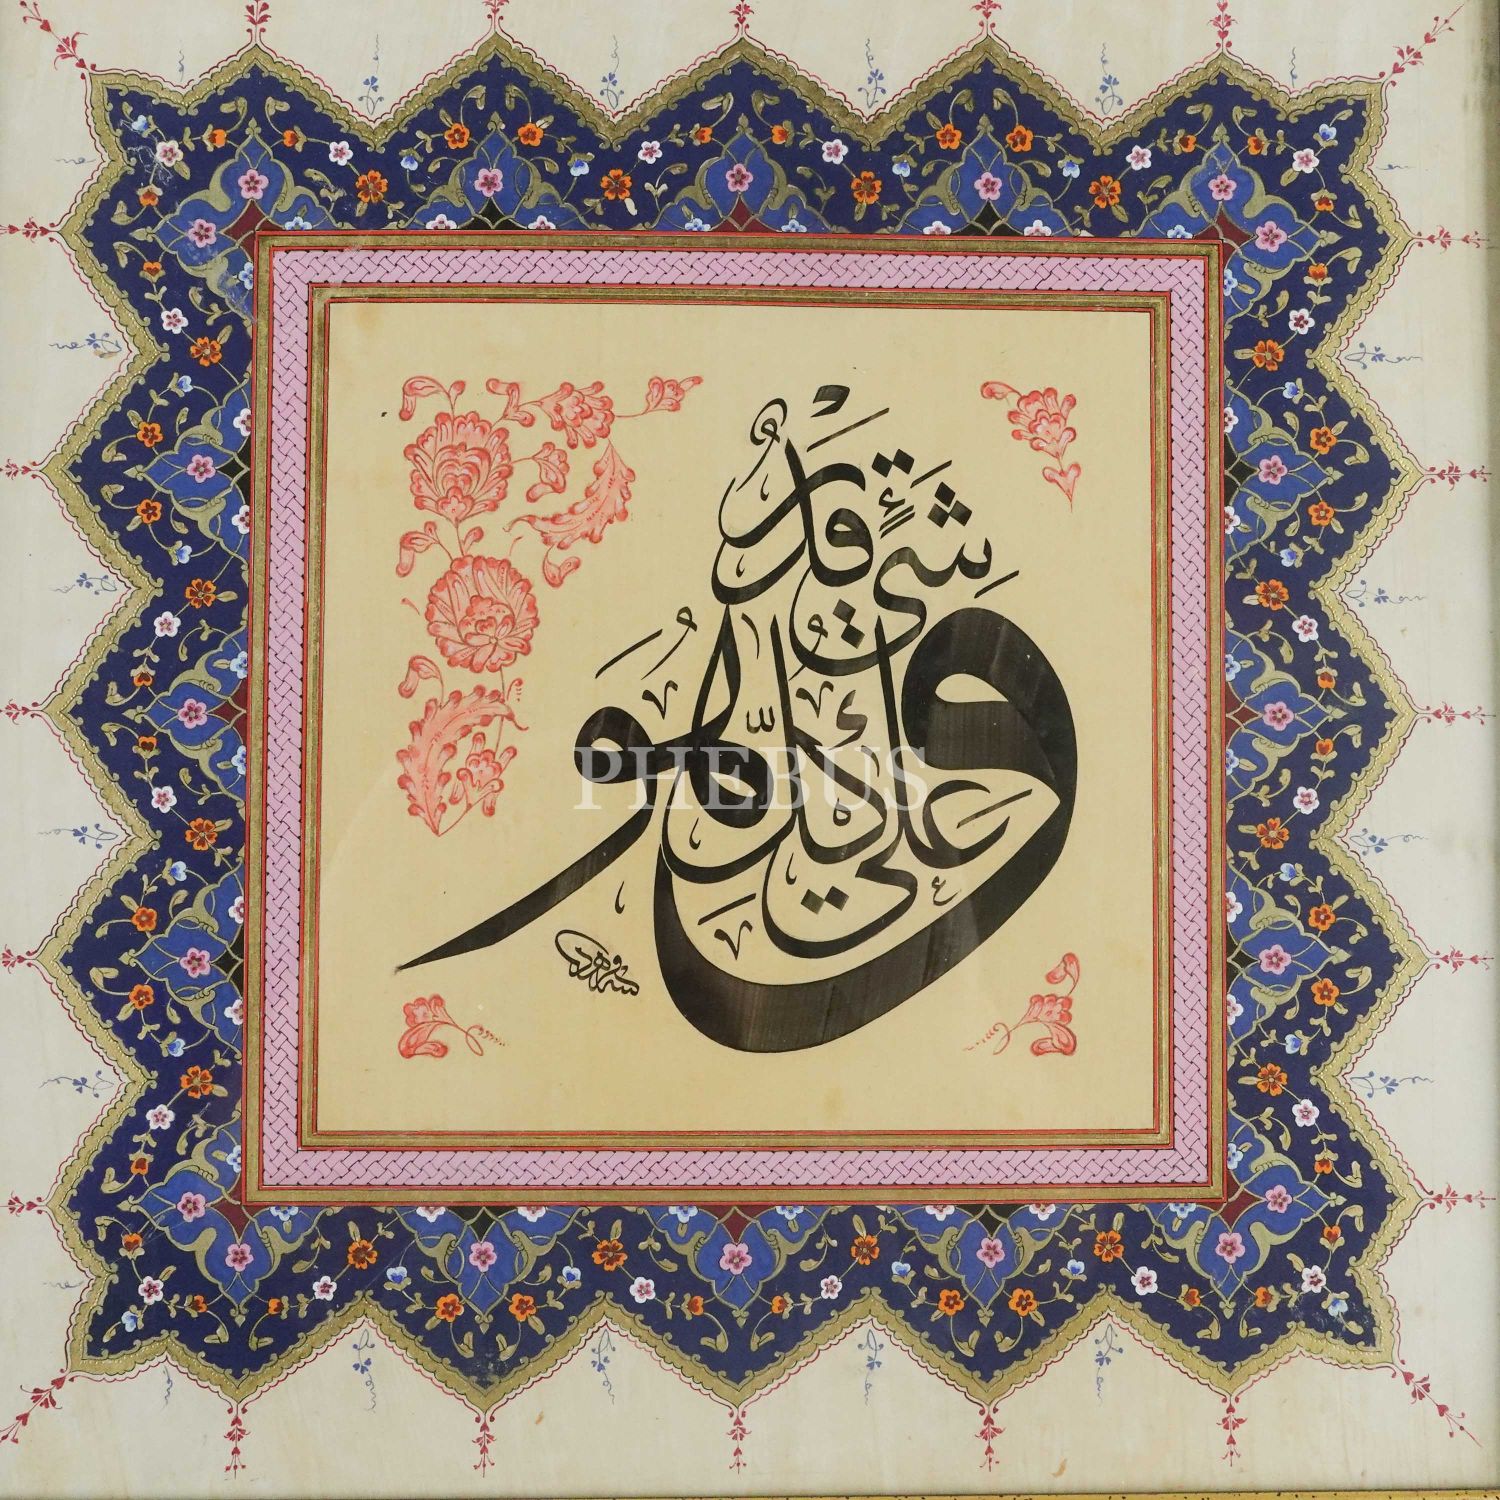 وَهُوَ عَلٰى كُلِّ شَىْءٍ قَدِيرٌ
PHEBUS